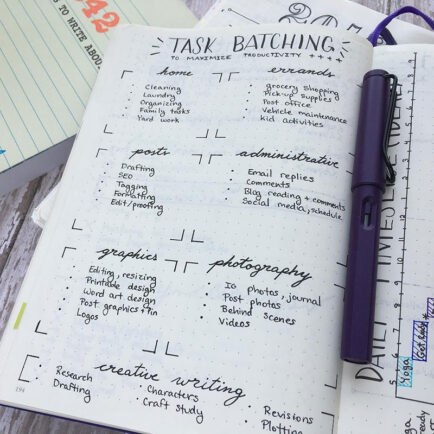 642
TO WRITE ABOUT
TASK BATCHING
TO MAXIMIZE PRODUCTIVITY ++++
home
Cleaning
Laundry
Organizing
Family tasks
Yard work
errands
grocery shopping
Pick-up supplies
Post office
Vehicle maintenance
kid activities
posts
Drafting
SEO
Tagging
Formatting
Edit/proofing
administrative
Email replies
Comments
Blog reading + comments
Social media, schedule
graphics
Editing, resizing
Printable design
Word art design
Post graphics + Pin
Logos
photography
IG Photos, journal
Post photos
Behind Scenes
Videos
creative writing
Research
Drafting
Characters
Craft study
Revisions
Plotting
194
DAILY TIMES
Yoga
Yoga